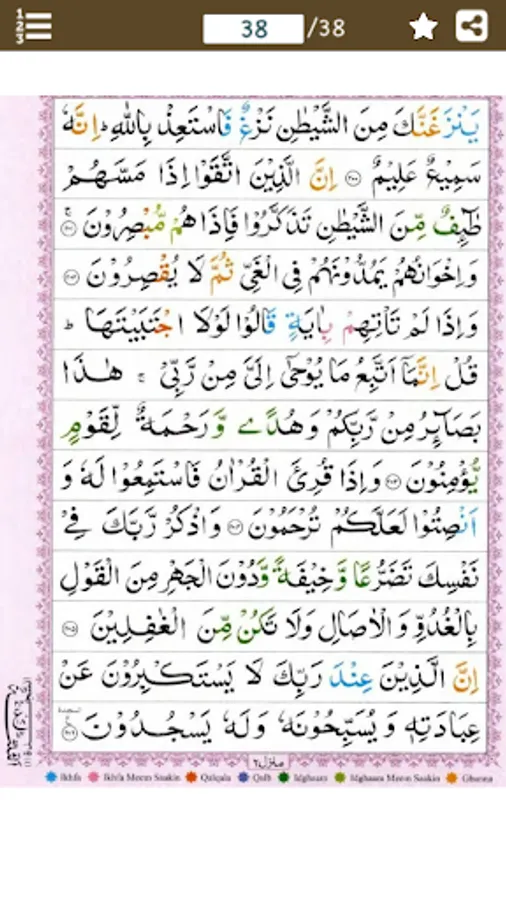 38 /38
يَنْزَغَنَّكَ مِنَ الشَّيْطٰنِ نَزْغٌ فَاسْتَعِذْ بِاللّٰهِ ؕ اِنَّهٗ
سَمِيْعٌ عَلِيْمٌ ۝۲۰۰ اِنَّ الَّذِيْنَ اتَّقَوْا اِذَا مَسَّهُمْ
طٰٓئِفٌ مِّنَ الشَّيْطٰنِ تَذَكَّرُوْا فَاِذَا هُمْ مُّبْصِرُوْنَ ۝۲۰۱
وَاِخْوَانُهُمْ يَمُدُّوْنَهُمْ فِي الْغَيِّ ثُمَّ لَا يُقْصِرُوْنَ ۝۲۰۲
وَاِذَا لَمْ تَاْتِهِمْ بِاٰيَةٍ قَالُوْا لَوْلَا اجْتَبَيْتَهَا ؕ
قُلْ اِنَّمَاۤ اَتَّبِعُ مَا يُوْحٰۤى اِلَيَّ مِنْ رَّبِّيْ ۚ هٰذَا
بَصَآئِرُ مِنْ رَّبِّكُمْ وَهُدًى وَّرَحْمَةٌ لِّقَوْمٍ
يُّؤْمِنُوْنَ ۝۲۰۳ وَاِذَا قُرِئَ الْقُرْاٰنُ فَاسْتَمِعُوْا لَهٗ وَ
اَنْصِتُوْا لَعَلَّكُمْ تُرْحَمُوْنَ ۝۲۰۴ وَاذْكُرْ رَّبَّكَ فِيْ
نَفْسِكَ تَضَرُّعًا وَّخِيْفَةً وَّدُوْنَ الْجَهْرِ مِنَ الْقَوْلِ
بِالْغُدُوِّ وَالْاٰصَالِ وَلَا تَكُنْ مِّنَ الْغٰفِلِيْنَ ۝۲۰۵
اِنَّ الَّذِيْنَ عِنْدَ رَبِّكَ لَا يَسْتَكْبِرُوْنَ عَنْ
عِبَادَتِهٖ وَيُسَبِّحُوْنَهٗ وَلَهٗ يَسْجُدُوْنَ ۝۲۰۶
منزل ۲
Ikhfa Ikhfa Meem Saakin Qalqala Qalb Idghaam Idghaam Meem Saakin Ghunna